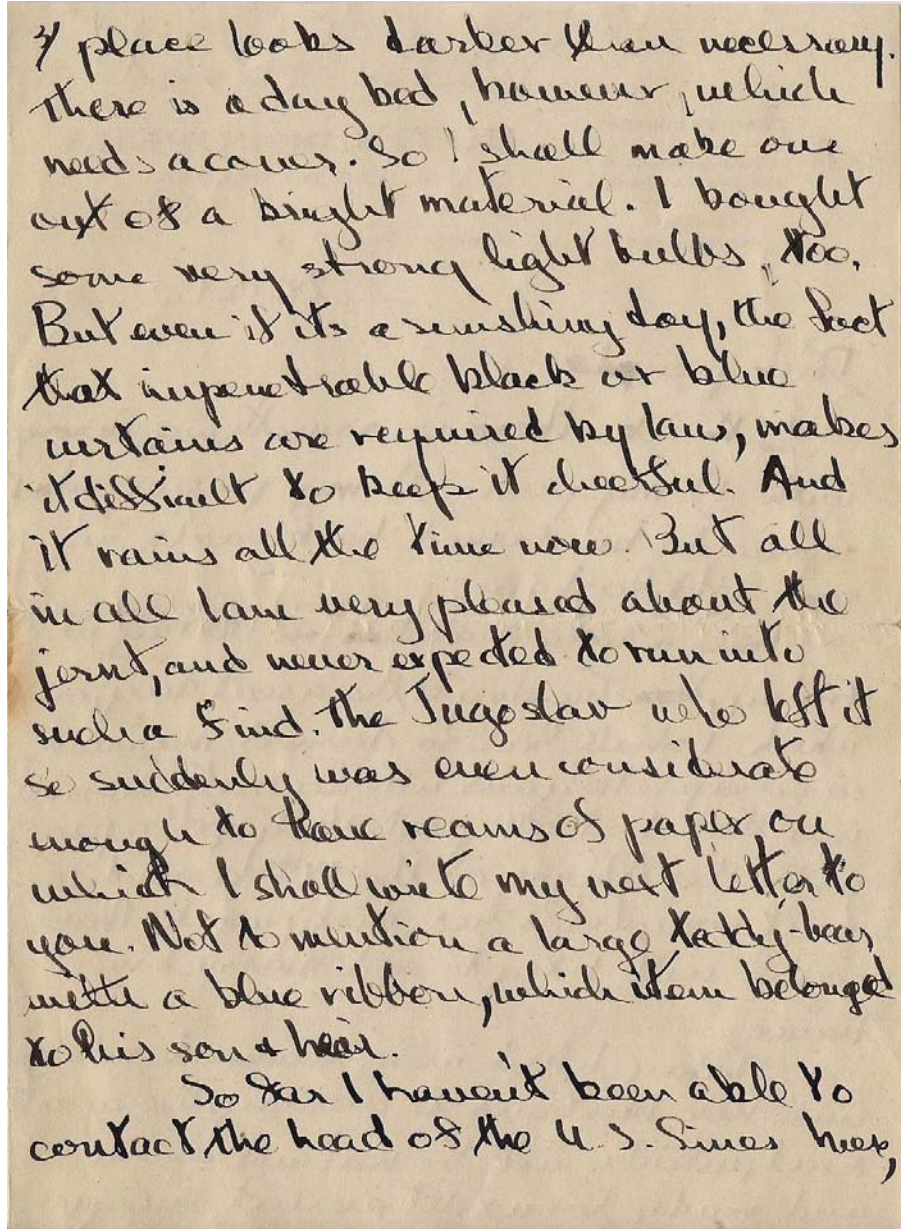 3/ place looks darker than necessary.
There is a day bed, however, which
needs a cover. So I shall make one
out of a bright material. I bought
some very strong light bulbs, too.
But even if its a sunshiny day, the fact
that impenetrable black or blue
curtains are required by law, makes
it difficult to keep it cheerful. And
it rains all the time now. But all
in all I am very pleased about the
joint, and never expected to run into
such a find. The Jugoslav who left it
so suddenly was even considerate
enough to leave reams of paper on
which I shall write my next letter to
you. Not to mention a large teddy-bear
with a blue ribbon, which item belonged
to his son & heir.
So far I haven't been able to
contact the head of the U.S. Lines here,